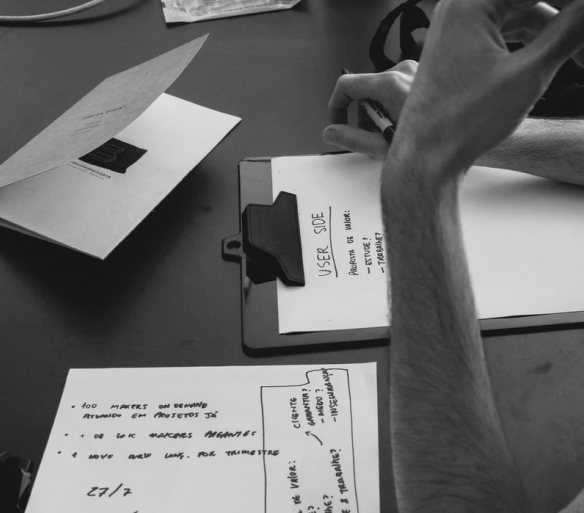 USER SIDE
PROPOSTA DE VALOR:
- ESTUDE?
- TRABALHE?
• 100 MAKERS ON DEMAND
ATUANDO EM PROJETOS JÁ
• + DE 20K MAKERS PAGANTES
• 1 NOVO CURSO LONG. POR TRIMESTRE
27/7
CLIENTE
GARANTIA?
- MEDO?
- INSEGURANÇA
DE VALOR:
& TRABALHE?